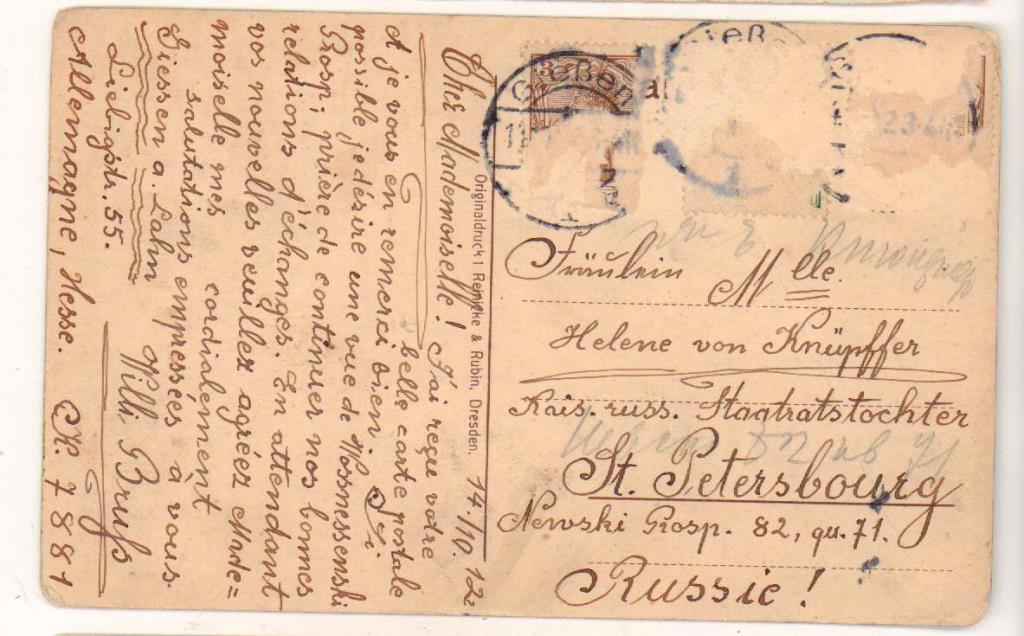 Chère Mademoiselle! J'ai reçu votre 14/10. 12
belle carte postale
et je vous en remercie bien. Si
possible je désire une vue de Wosnessenski
Prosp; prière de continuer nos bonnes
relations d'échanges. En attendant
vos nouvelles veuillez agréez Made=
moiselle mes cordialement
salutations empressées à vous.
Giessen a. Lahn Willi Bruſs
Liebigstr. 55.
Allemagne, Hesse.
Originaldruck: Reinicke & Rubin, Dresden.
3
Gießen
Fräulein Mlle.
Helene von Knüpffer
Kais. russ. Staatratstochter
St. Petersbourg
Newski Prosp. 82, qu. 71.
Russie!